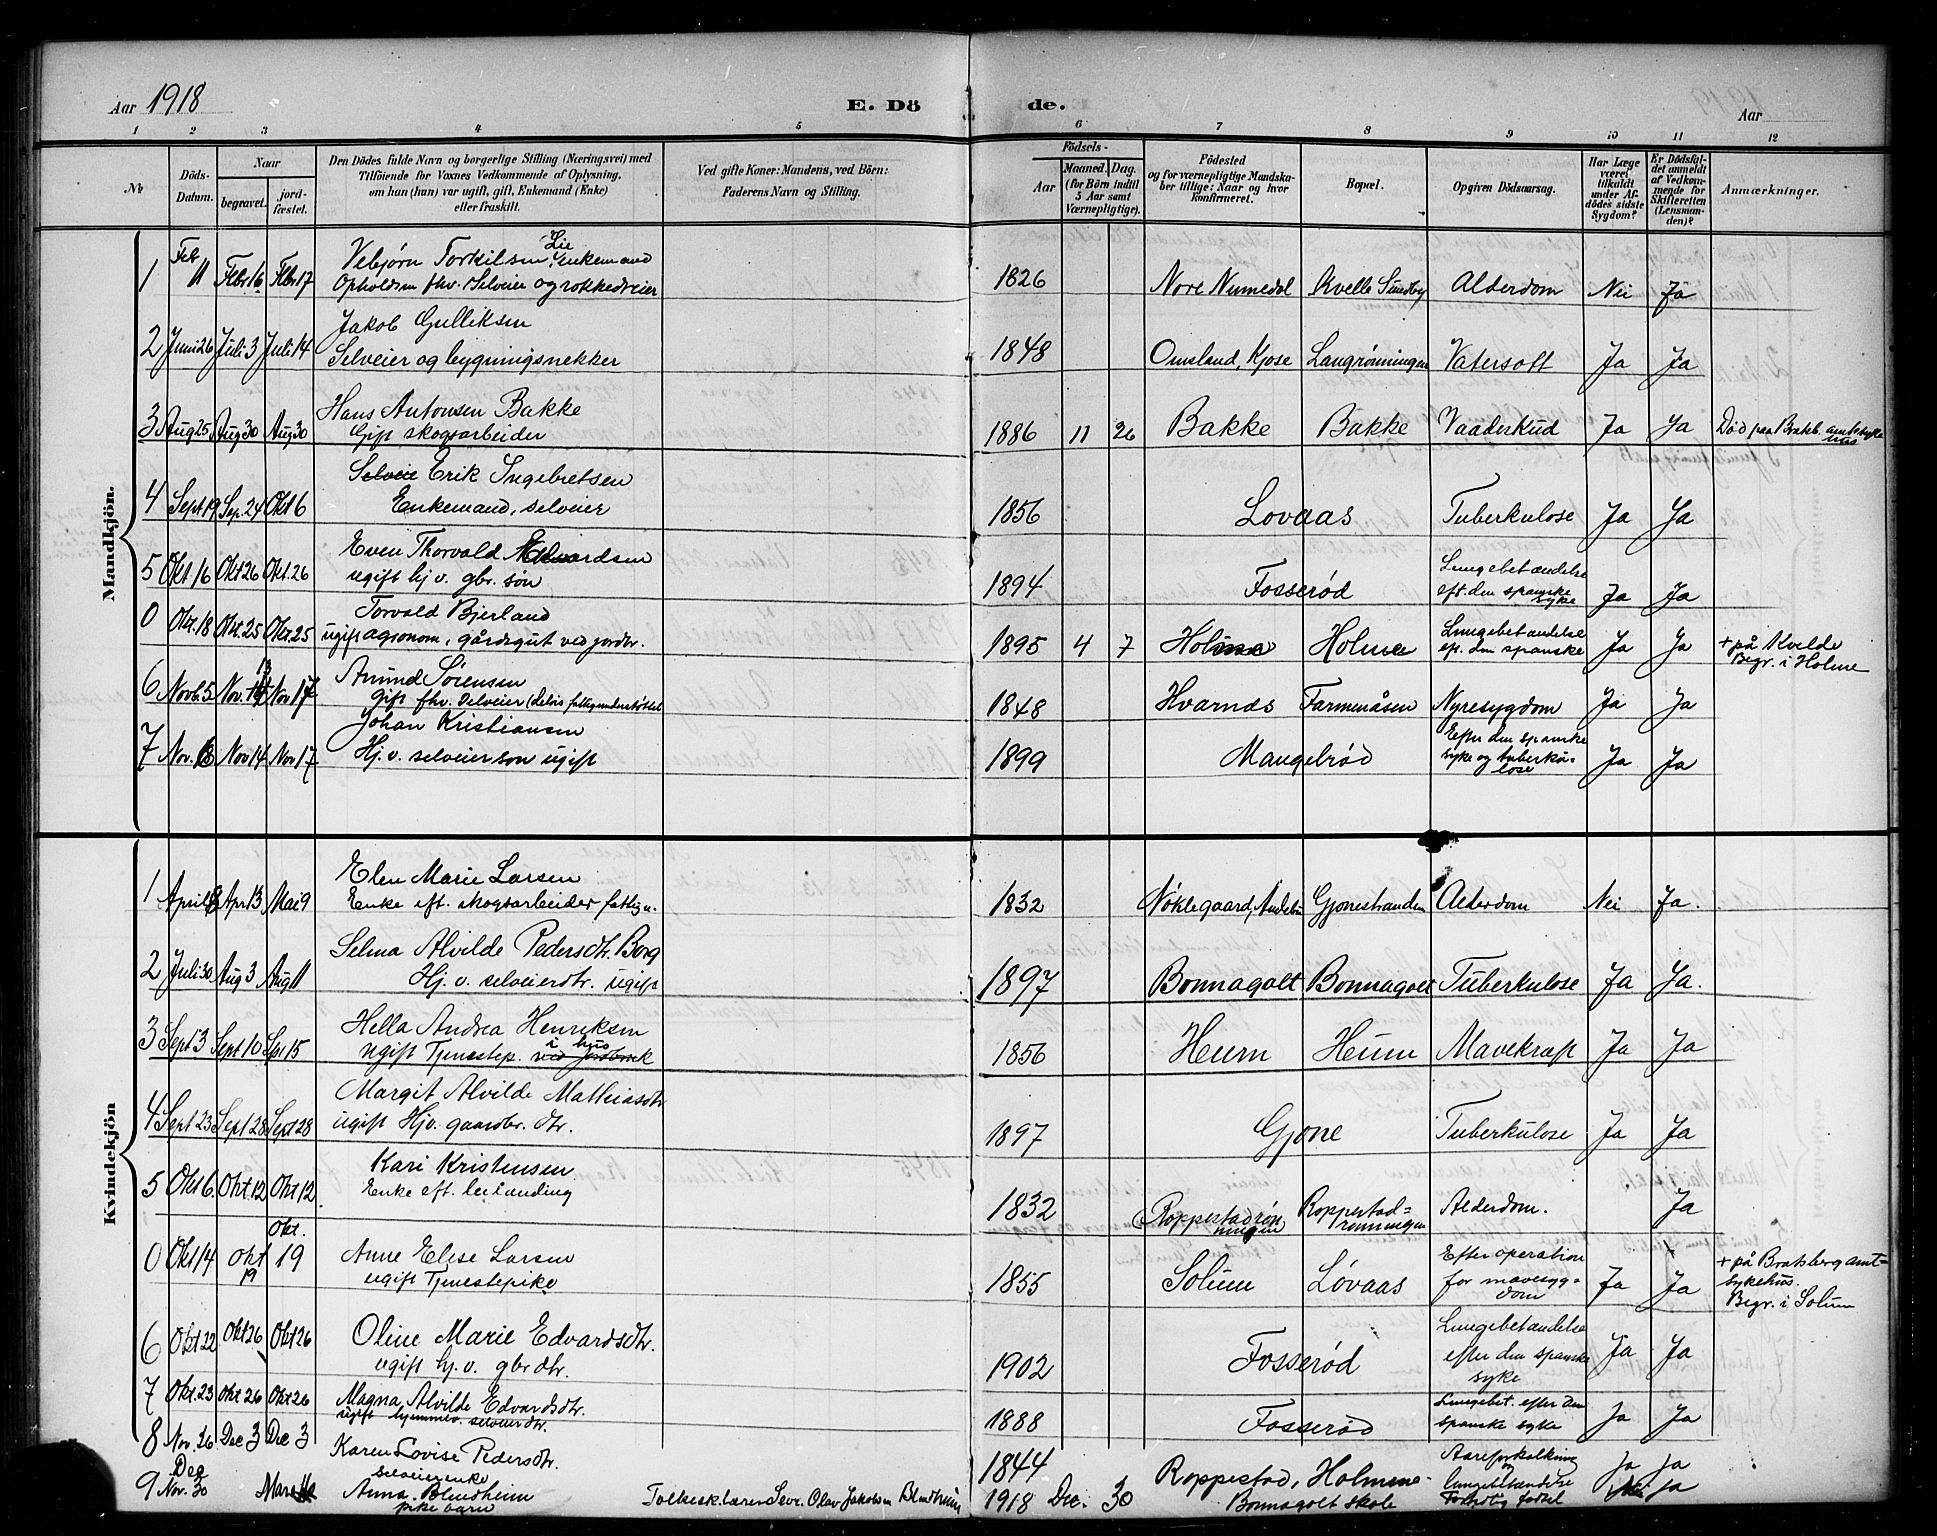 Aar 1918 E. Dö de. Aar
1 2 3 4 5 6 7 8 9 10 11 12
No
Döds-Datum.
Naar
begravet.
jord-fæstet.
Den Dödes fulde Navn og borgerlige Stilling (Næringsvei) med
Tilföiende for Voxnes Vedkommende af Oplysning,
om han (hun) var ugift, gift, Enkemand (Enke)
eller fraskilt.
Ved gifte Koner: Mandens, ved Börn:
Faderens Navn og Stilling.
Födsels-
Aar
Maaned. Dag.
(for Börn indtil
5 Aar samt
Værnepligtige).
Födested
og for værnepligtige Mandska-
ber tillige: Naar og hvor
konfirmeret.
Bopæl.
Opgiven Dödsaarsag.
Har Læge
været
tilkaldt
under Af-
dödes sidste
Sygdom?
Er Dödsfal-
det anmeldt
af Vedkom-
mende for
Skifteretten
(Lensman-
den)?
Anmærkninger.
Mandkjön.
Lie
1 Feb 11 Febr 16 Febr 17 Vebjørn Torkilsen Enkemand 1826 Nore Numedal Kvelle Sundby Alderdom Nei Ja
Opholdsm fhv. Selveier og rokkedreier
2 Juni 26 Juli 3 Juli 14 Jakob Gulliksen 1848 Omsland, Kjose Langrønningen Vatersott Ja Ja
Selveier og bygningsnekker
3 Aug 25 Aug 30 Aug 30 Hans Antonsen Bakke 1886 11 26 Bakke Bakke Vaaderkud Ja Ja Død paa Bratsb. amtssyke
hus
Gift skogsarbeider
4 Sept 19 Sep. 24 Okt 6 Selveie Erik Ingebretsen 1856 Lovaas Tuberkulose Ja Ja
Enkemand, selveier
5 Okt 16 Okt 26 Okt. 26 Even Thorvald Edvardsen 1894 Fosserød Lungebetændelse
eft. den spanske
syke Ja Ja
ugift hj. v. gbr. søn
0 Okt. 18 Okt. 25 Okt. 25 Torvald Bjerland 1895 4 7 Holme Holme Lungebetændelse
ef. den spanske Ja Ja + på Kvelde
Begr. i Holme
ugift agronom, gårdsgut ved jordbr.
6 Novb. 5 Nov. 13 Nov 17 Amund Sørensen 1848 Hvarnes Farmenåsen Nyresygdom Ja Ja
gift fhv. Selveier (delvis fattigunderstøttet
7 Nov. 8 Nov 14 Nov 17 Johan Kristiansen 1899 Mangelrød Efter den spanske
syke og tuberku-
lose Ja Ja
Hj. v. selveier søn ugift
Kvindekjön
1 April 8 Apr 13 Mai 9 Elen Marie Larsen 1832 Nøklegaard, Gjonestranden Alderdom Nei Ja.
Enke eft. skogsarbeider fattigu.
2 Juli 30 Aug 3 Aug 11 Selma Alvilde Pedersdtr. Borg 1897 Bonnagolt Bonnagolt Tuberkulose Ja Ja.
Hj. v. selveierdtr. ugift
3 Sept 3 Sept 10 Spt 15 Hella Andrea Henriksen 1856 Heum Heum Mavekræft Ja Ja
ugift Tjenestep. i hus ved Jordbruk
4 Sept 23 Sept 28 Sept 28 Margit Alvilde Mathiasdtr 1897 Gjone Tuberkulose Ja Ja
ugift Hjv. gaardbr. dtr.
5 Okt 6. Okt 12 Okt 12 Kari Kristensen 1832 Roppestadrøn
ningen Roppestad=
rønningen Alderdom. Ja
Enke eft. leilænding
0 Okt 14 Okt 19 Okt. 19 Anne Elise Larsen 1855 Solum Løvaas Efter operation
for mavesyg=
dom Ja Ja + på Bratsberg amt-
sykehus.
Begr. i Solum
ugift Tjenestepike
6 Okt 22 Okt 26 Okt 26 Oline Marie Edvardsdtr. 1902 Fosserød Lungebetændelse
efter den spanske
syke Ja Ja
ugift hj. v. gbr dtr.
7 Okt. 23 Okt 26 Okt 26 Magna Alvilde Edvardsdtr. 1888 Fosserød Lungebet. efter den
spanske syke Ja Ja
ugift hjemmev. selveierdtr.
8 Nov. 26 Dec 3 Dec 3 Karen Lovise Pedersdtr. 1844 Roppestad, Holmene Aareforkalkning
og
lungebetændelse Ja Ja
selveierenke
9 Dec
Nov. 30 Anna Blindheim Folkesk.lærer Sevr. Olav Jakobsen Blindheim 1918 Dec. 30 Bonnagolt skole Fortidlig fødsel Nei Ja
pike barn